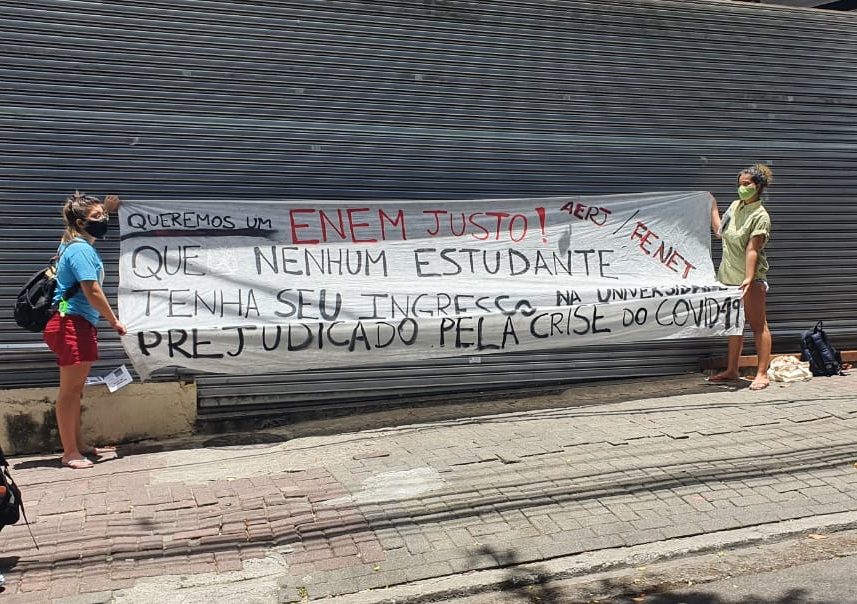 QUEREMOS UM ENEM JUSTO! AERJ / FENET
QUE NENHUM ESTUDANTE
TENHA SEU INGRESSO NA UNIVERSIDADE
PREJUDICADO PELA CRISE DO COVID-19